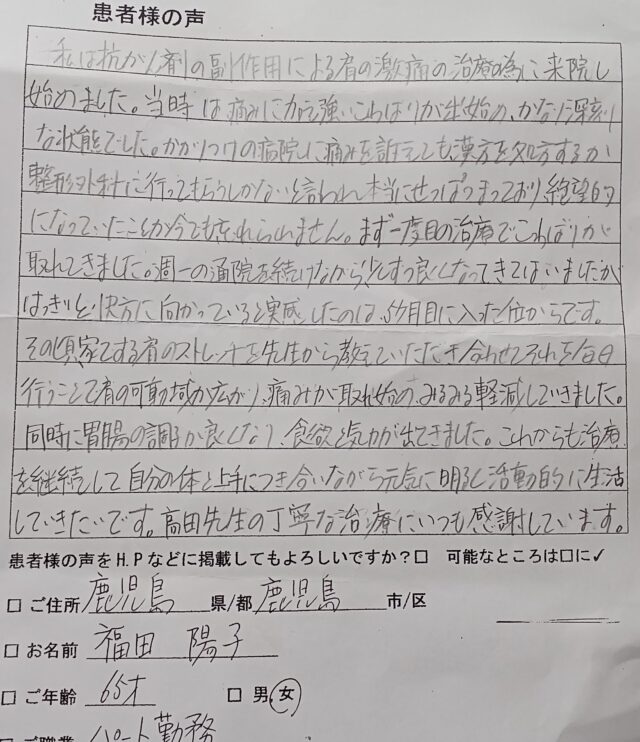 患者様の声
私は抗がん剤の副作用による肩の激痛の治療の為に来院し
始めました。当時は痛みに加え強いこわばりが出始め、かなり深刻
な状態でした。かかりつけの病院に痛みを訴えても漢方を処方するか
整形外科に行ってもらうしかないと言われ本当にせっぱつまっており、絶望的
になっていたことが今でも忘れられません。まず一度目の治療でこわばりが
取れてきました。週一の通院を続けながら少しずつ良くなってきてはいましたが
はっきりと快方に向かっていると実感したのは、5ヶ月目に入った位からです。
その頃家でする肩のストレッチを先生から教えていただき合わせてそれを毎日
行うことで肩の可動域が広がり、痛みが取れ始め、みるみる軽減していきました。
同時に胃腸の調子が良くなり、食欲と気力が出てきました。これからも治療
を継続して自分の体と上手につき合いながら元気に明るく活動的に生活
していきたいです。高田先生の丁寧な治療にいつも感謝しています。
患者様の声をH.Pなどに掲載してもよろしいですか?□ 可能なところは□に✓
□ ご住所 鹿児島 県/都 鹿児島 市/区
□ お名前 福田 陽子
□ ご年齢 65才 □ 男.女
□ ご職業 パート勤務